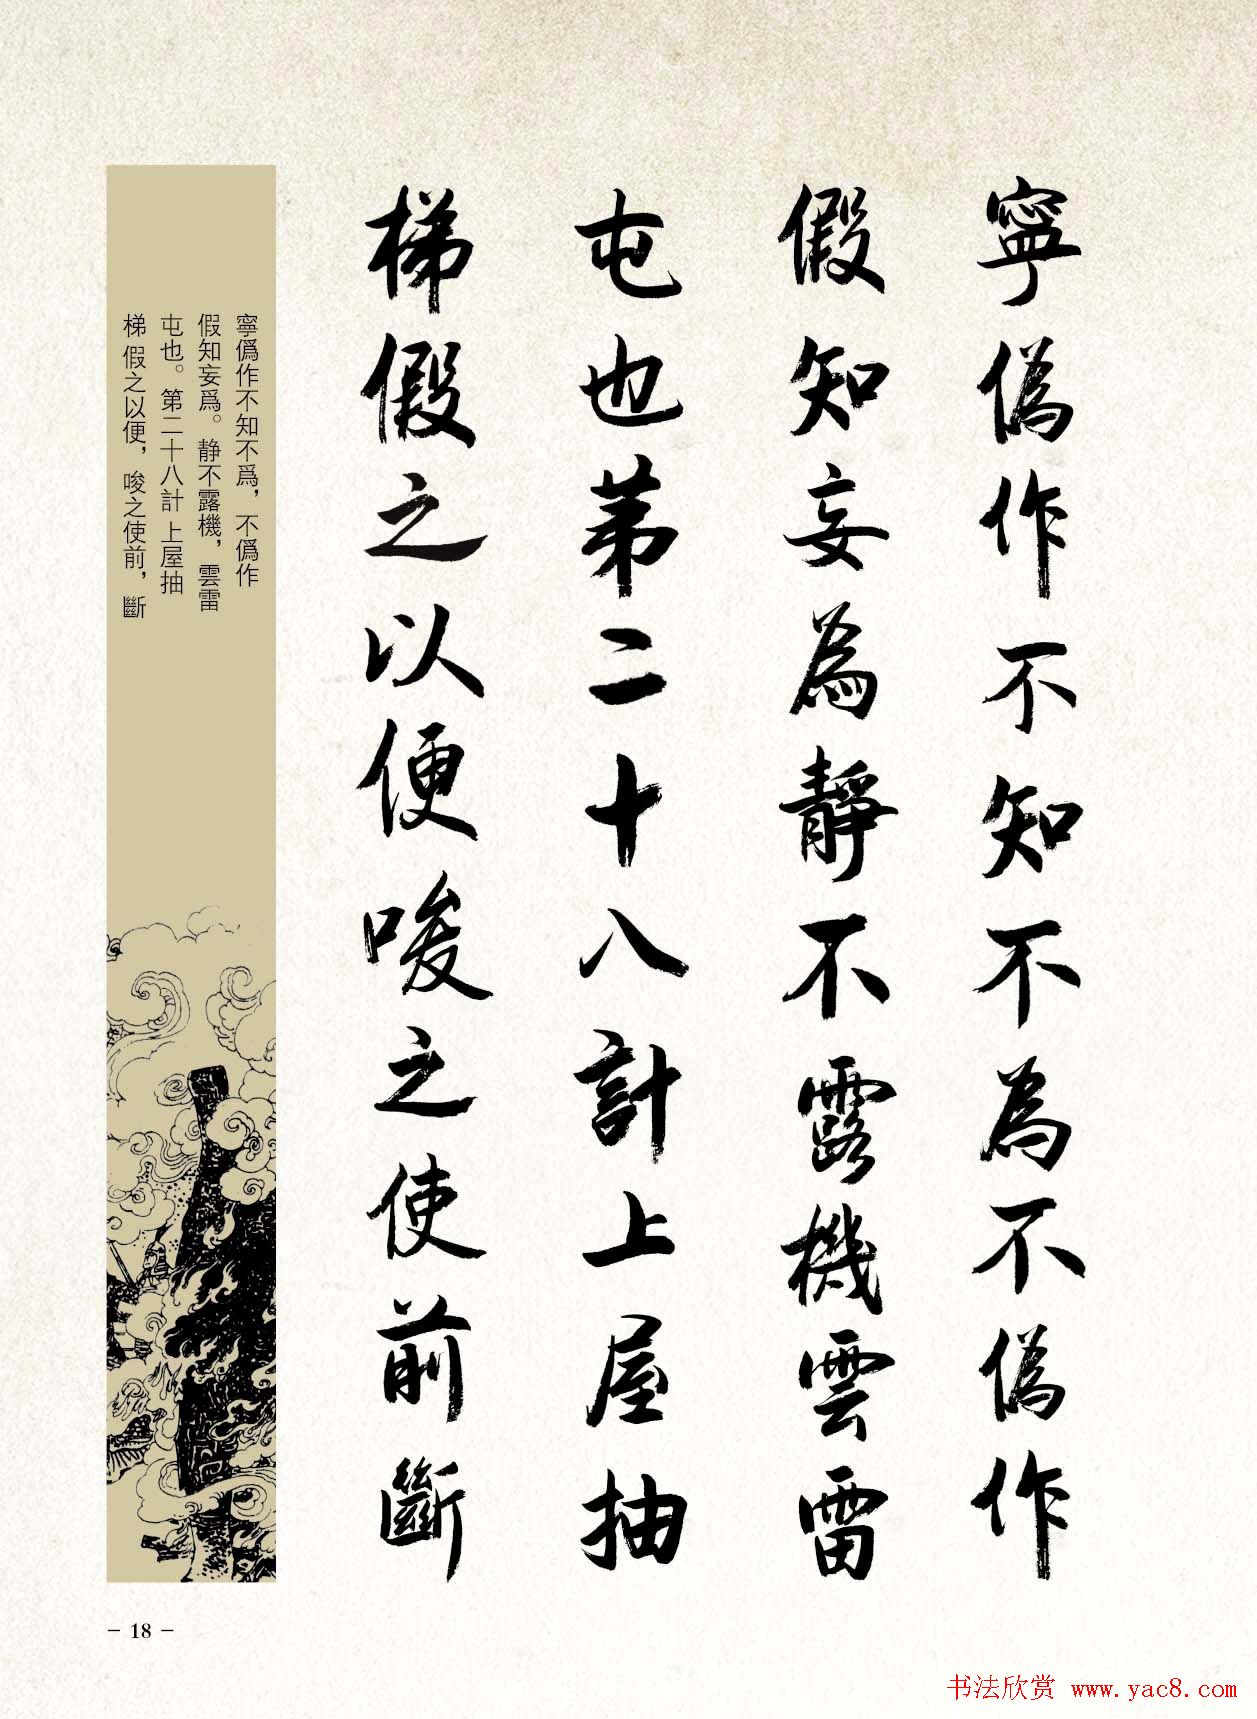 寧偽作不知不為不偽作
假知妄為靜不露機雲雷
屯也苐二十八計上屋抽
梯假之以便唆之使前斷
寧僞作不知不爲，不僞作
假知妄爲。静不露機，雲雷
屯也。第二十八計 上屋抽
梯 假之以便，唆之使前，斷
- 18 -
书法欣赏 www.yac8.com